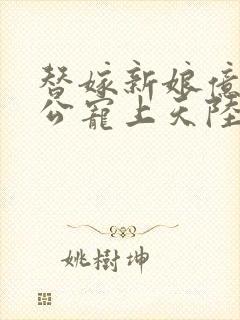 替嫁新娘億
公寵上天陸
姚樹坤